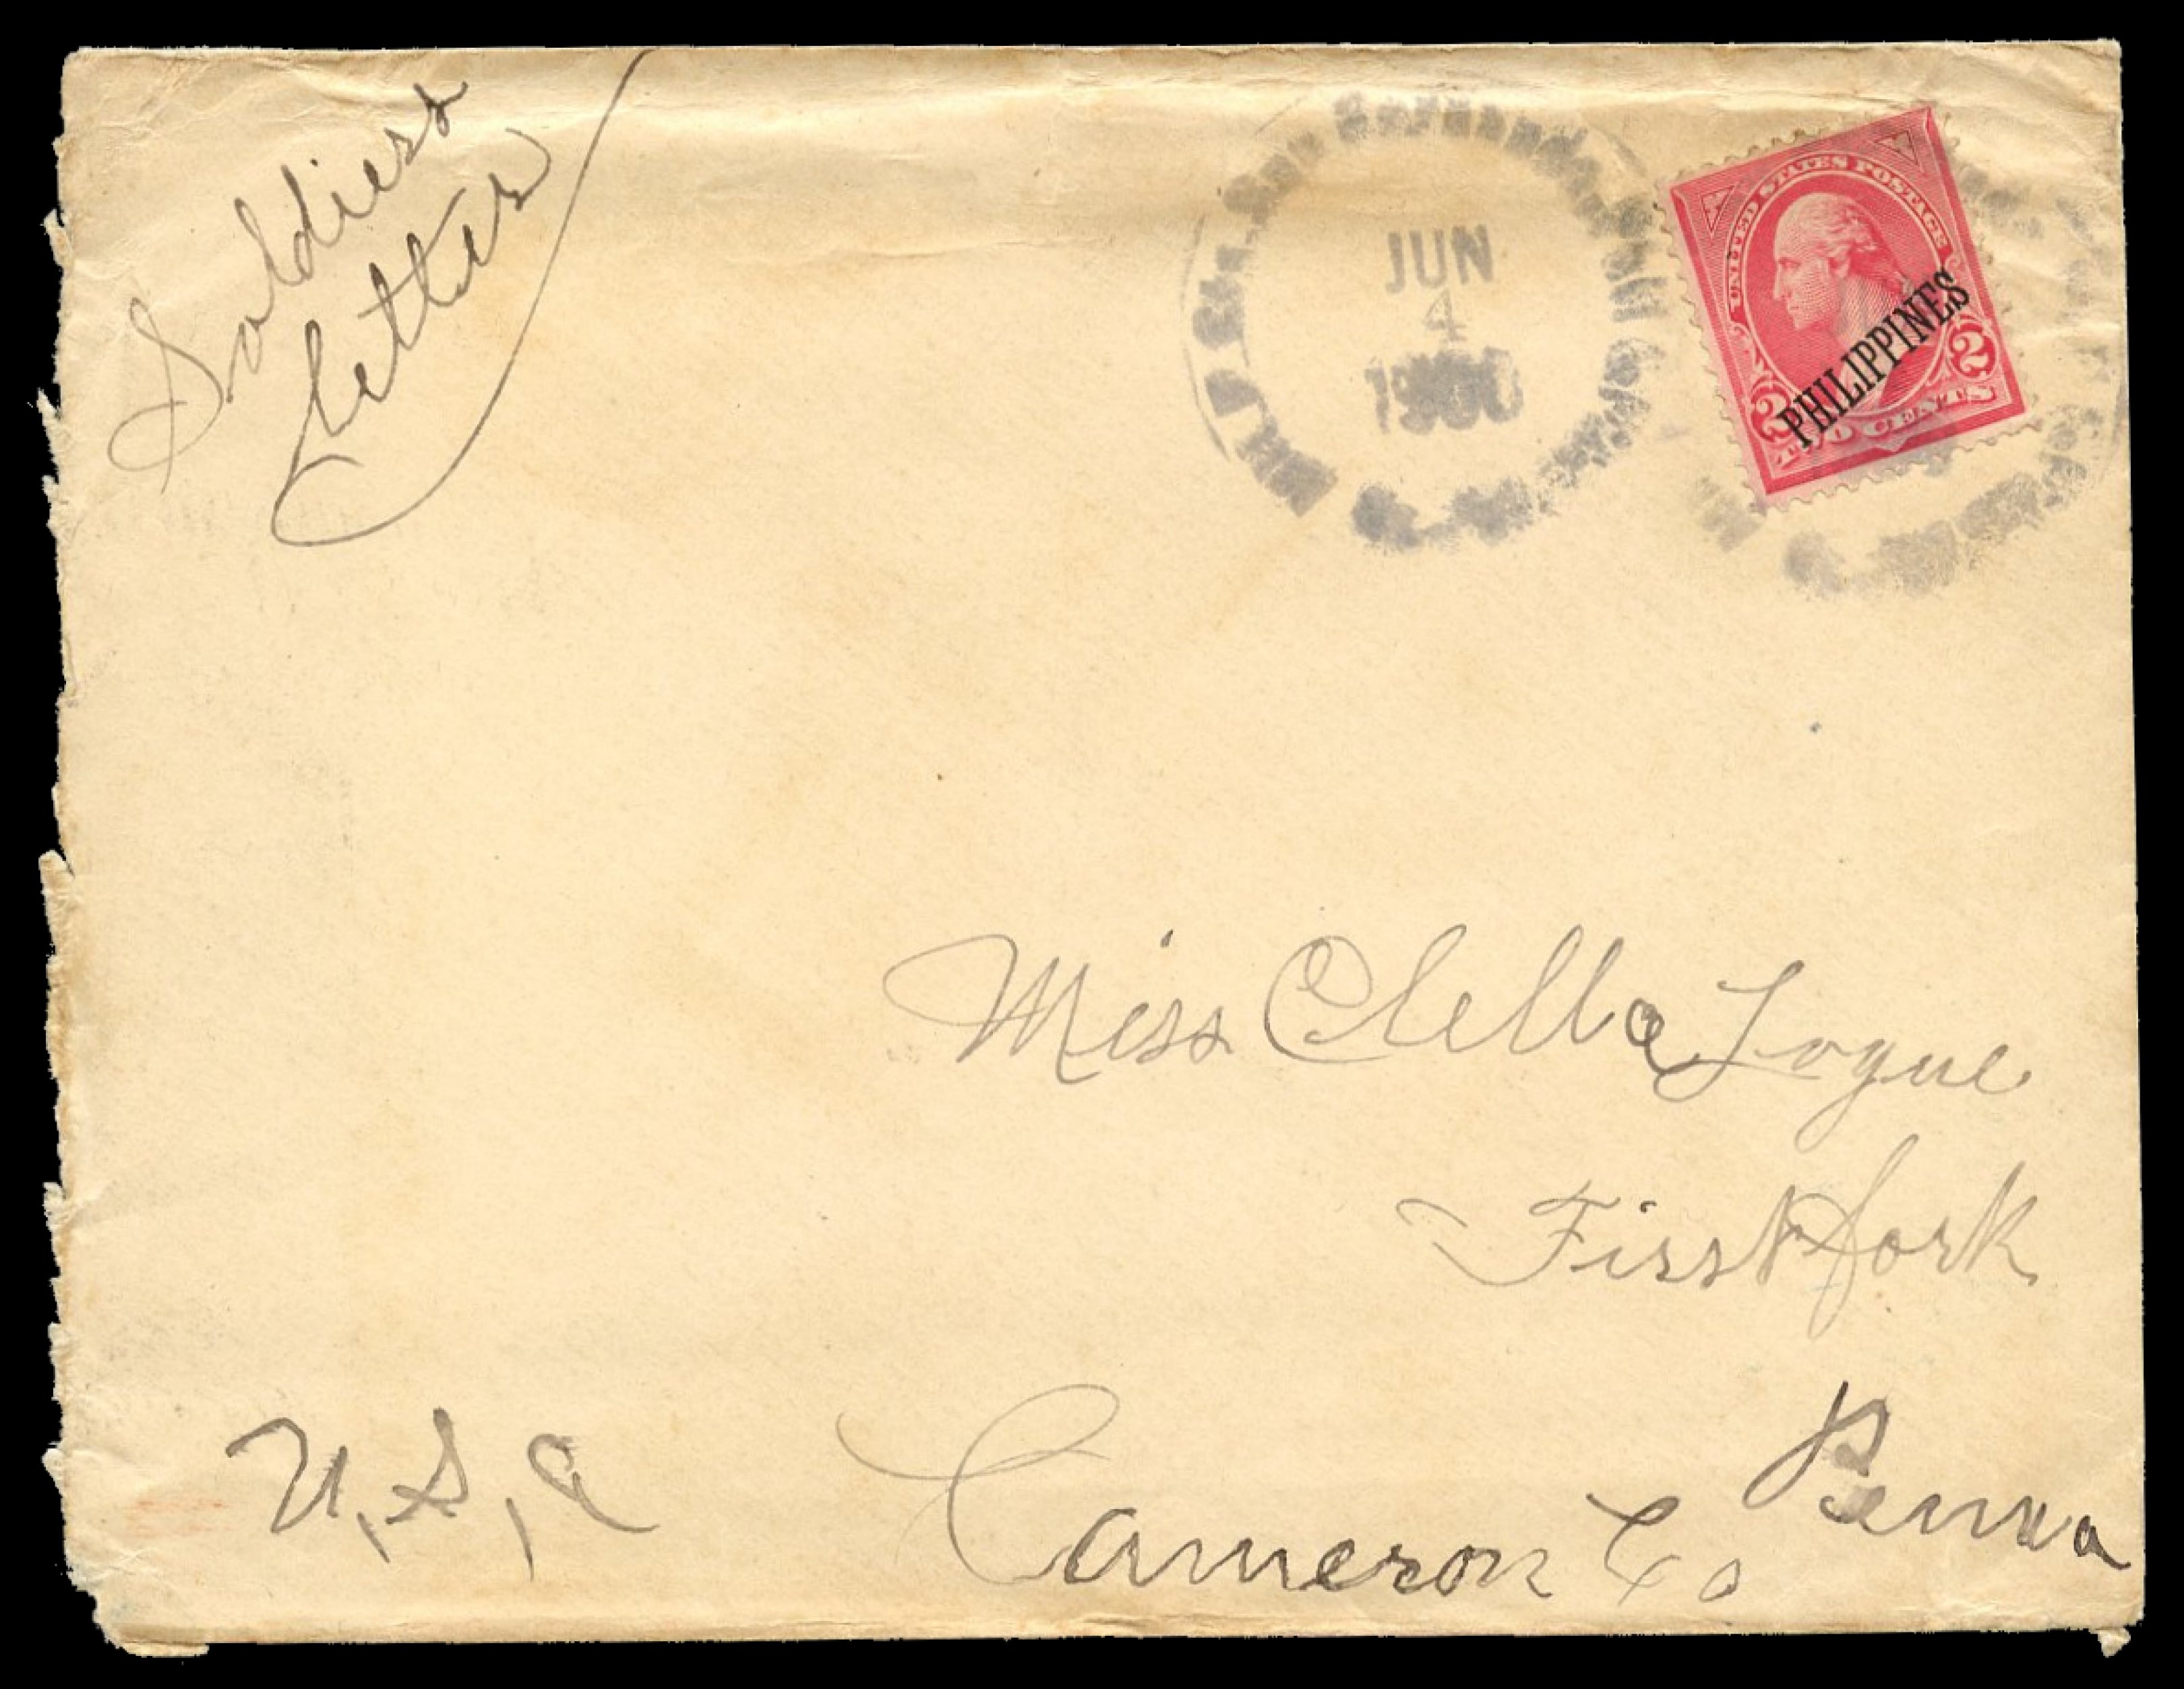 Soldiers
Letter
JUN
4
1900
UNITED STATES POSTAGE
PHILIPPINES
2 2
TWO CENTS
Miss Clella Logue
First fork
Cameron Co Penna
U, S, a